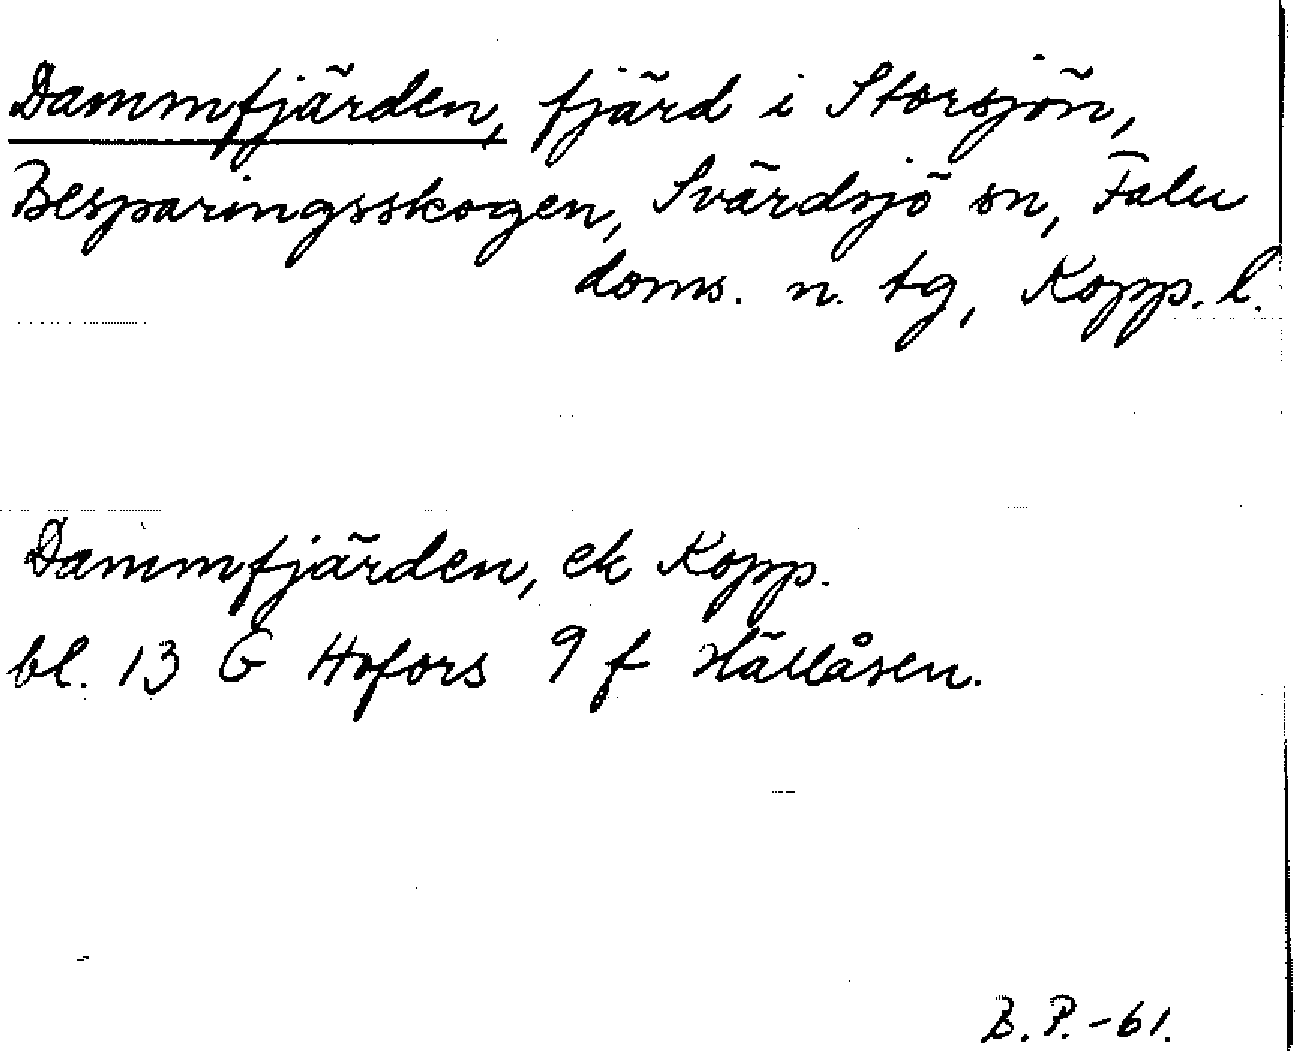 Dammfjärden, fjärd i Storsjön,
Besparingsskogen, Svärdsjö sn, Falu
doms. n. tg, Kopp. l.
Dammfjärden, ek Kopp.
bl. 13 G Hofors 9 f Hällåsen.
B. P. -61.